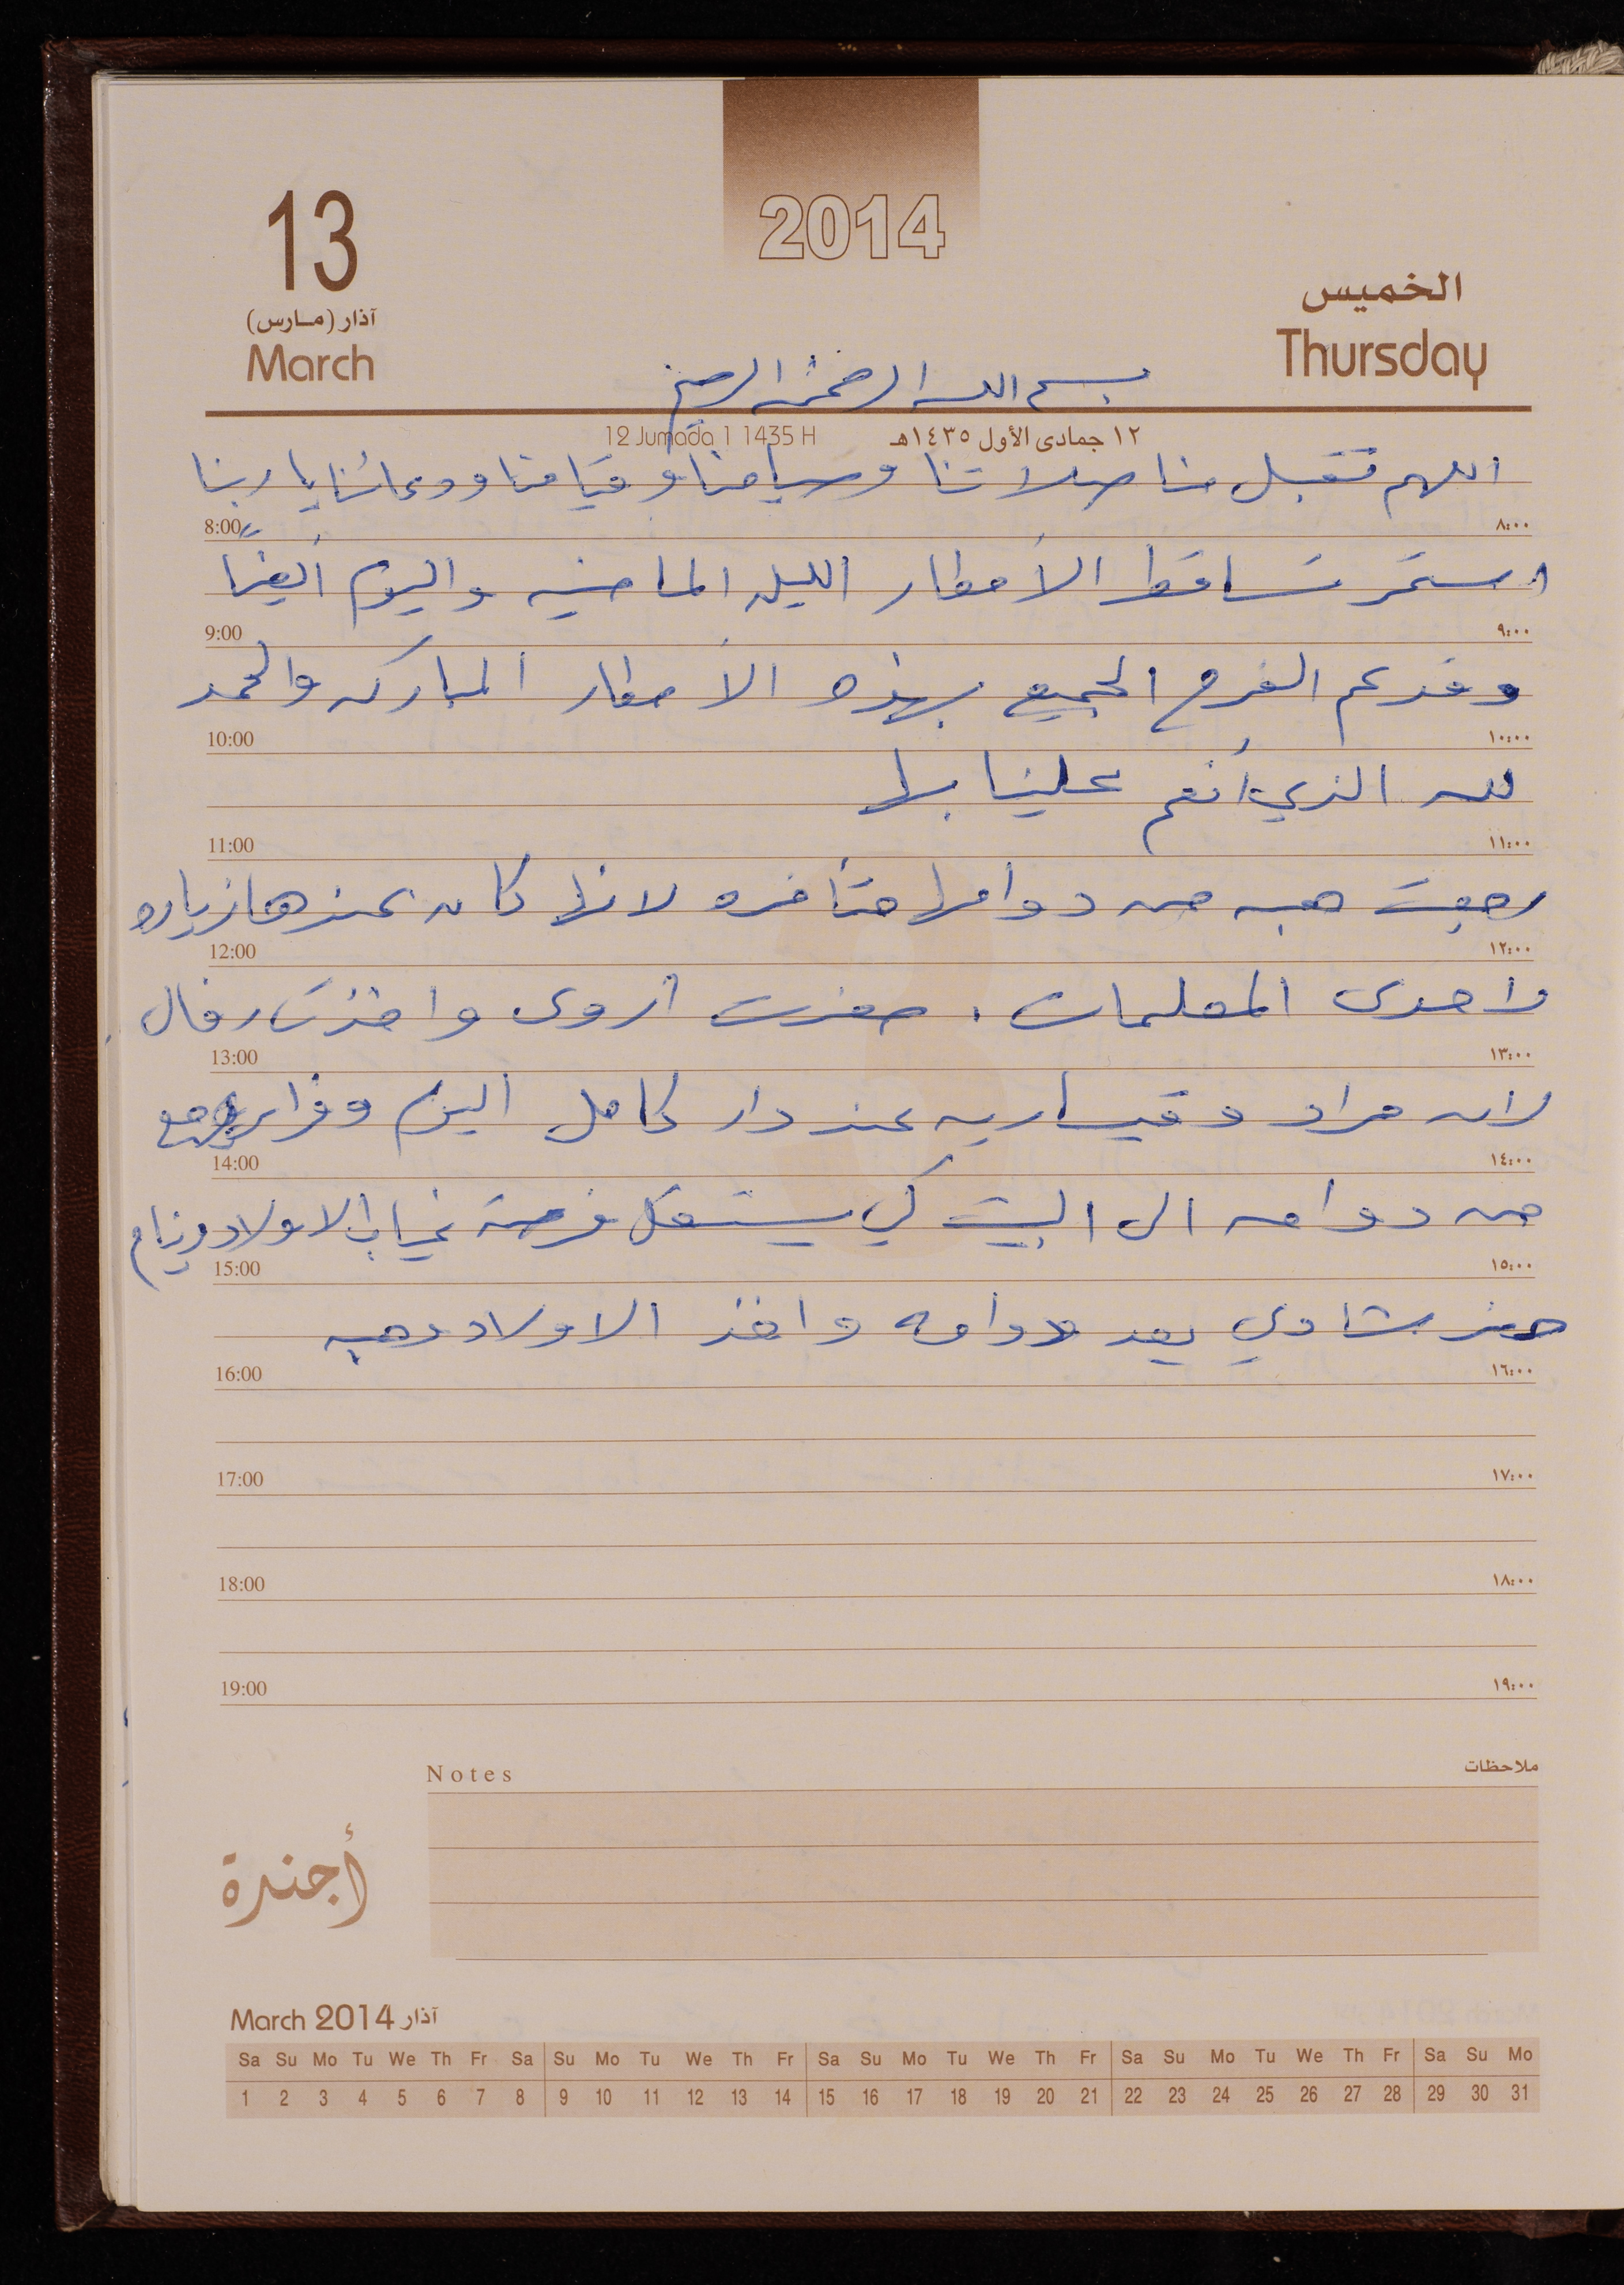 2014
13
آذار (مارس)
March
الخميس
Thursday
بسم الله الرحمن الرحيم
12 Jumada 1 1435 H
١٢ جمادى الأول ١٤٣٥هـ
اللهم تقبل منا صلاتنا وصيامنا وقيامنا ودعائنا يا ربنا
8:00 ٨:٠٠
استمر تساقط الأمطار الليله الماضيه واليوم أيضًا
9:00 ٩:٠٠
وقد عم الفرح الجميع بهذه الأمطار المباركه والحمد
10:00 ١٠:٠٠
لله الذي أنعم علينا بها
11:00 ١١:٠٠
رجعت هبه من دوامها متأخره لانها كان عندها زياره
12:00 ١٢:٠٠
لاحدى المعلمات . حضرت أروى واخذت رفال
13:00 ١٣:٠٠
لان مراد وقيساريه عند دار كامل اليوم وفراس رجع
14:00 ١٤:٠٠
من دوامه الى البيت كي يستغل فرصة غياب الاولاد وينام
15:00 ١٥:٠٠
حضر شادي بعد دوامه واخذ الاولاد وهبه
16:00 ١٦:٠٠
17:00 ١٧:٠٠
18:00 ١٨:٠٠
19:00 ١٩:٠٠
Notes ملاحظات
أجندة
March 2014 آذار
Sa Su Mo Tu We Th Fr Sa Su Mo Tu We Th Fr Sa Su Mo Tu We Th Fr Sa Su Mo Tu We Th Fr Sa Su Mo
1 2 3 4 5 6 7 8 9 10 11 12 13 14 15 16 17 18 19 20 21 22 23 24 25 26 27 28 29 30 31